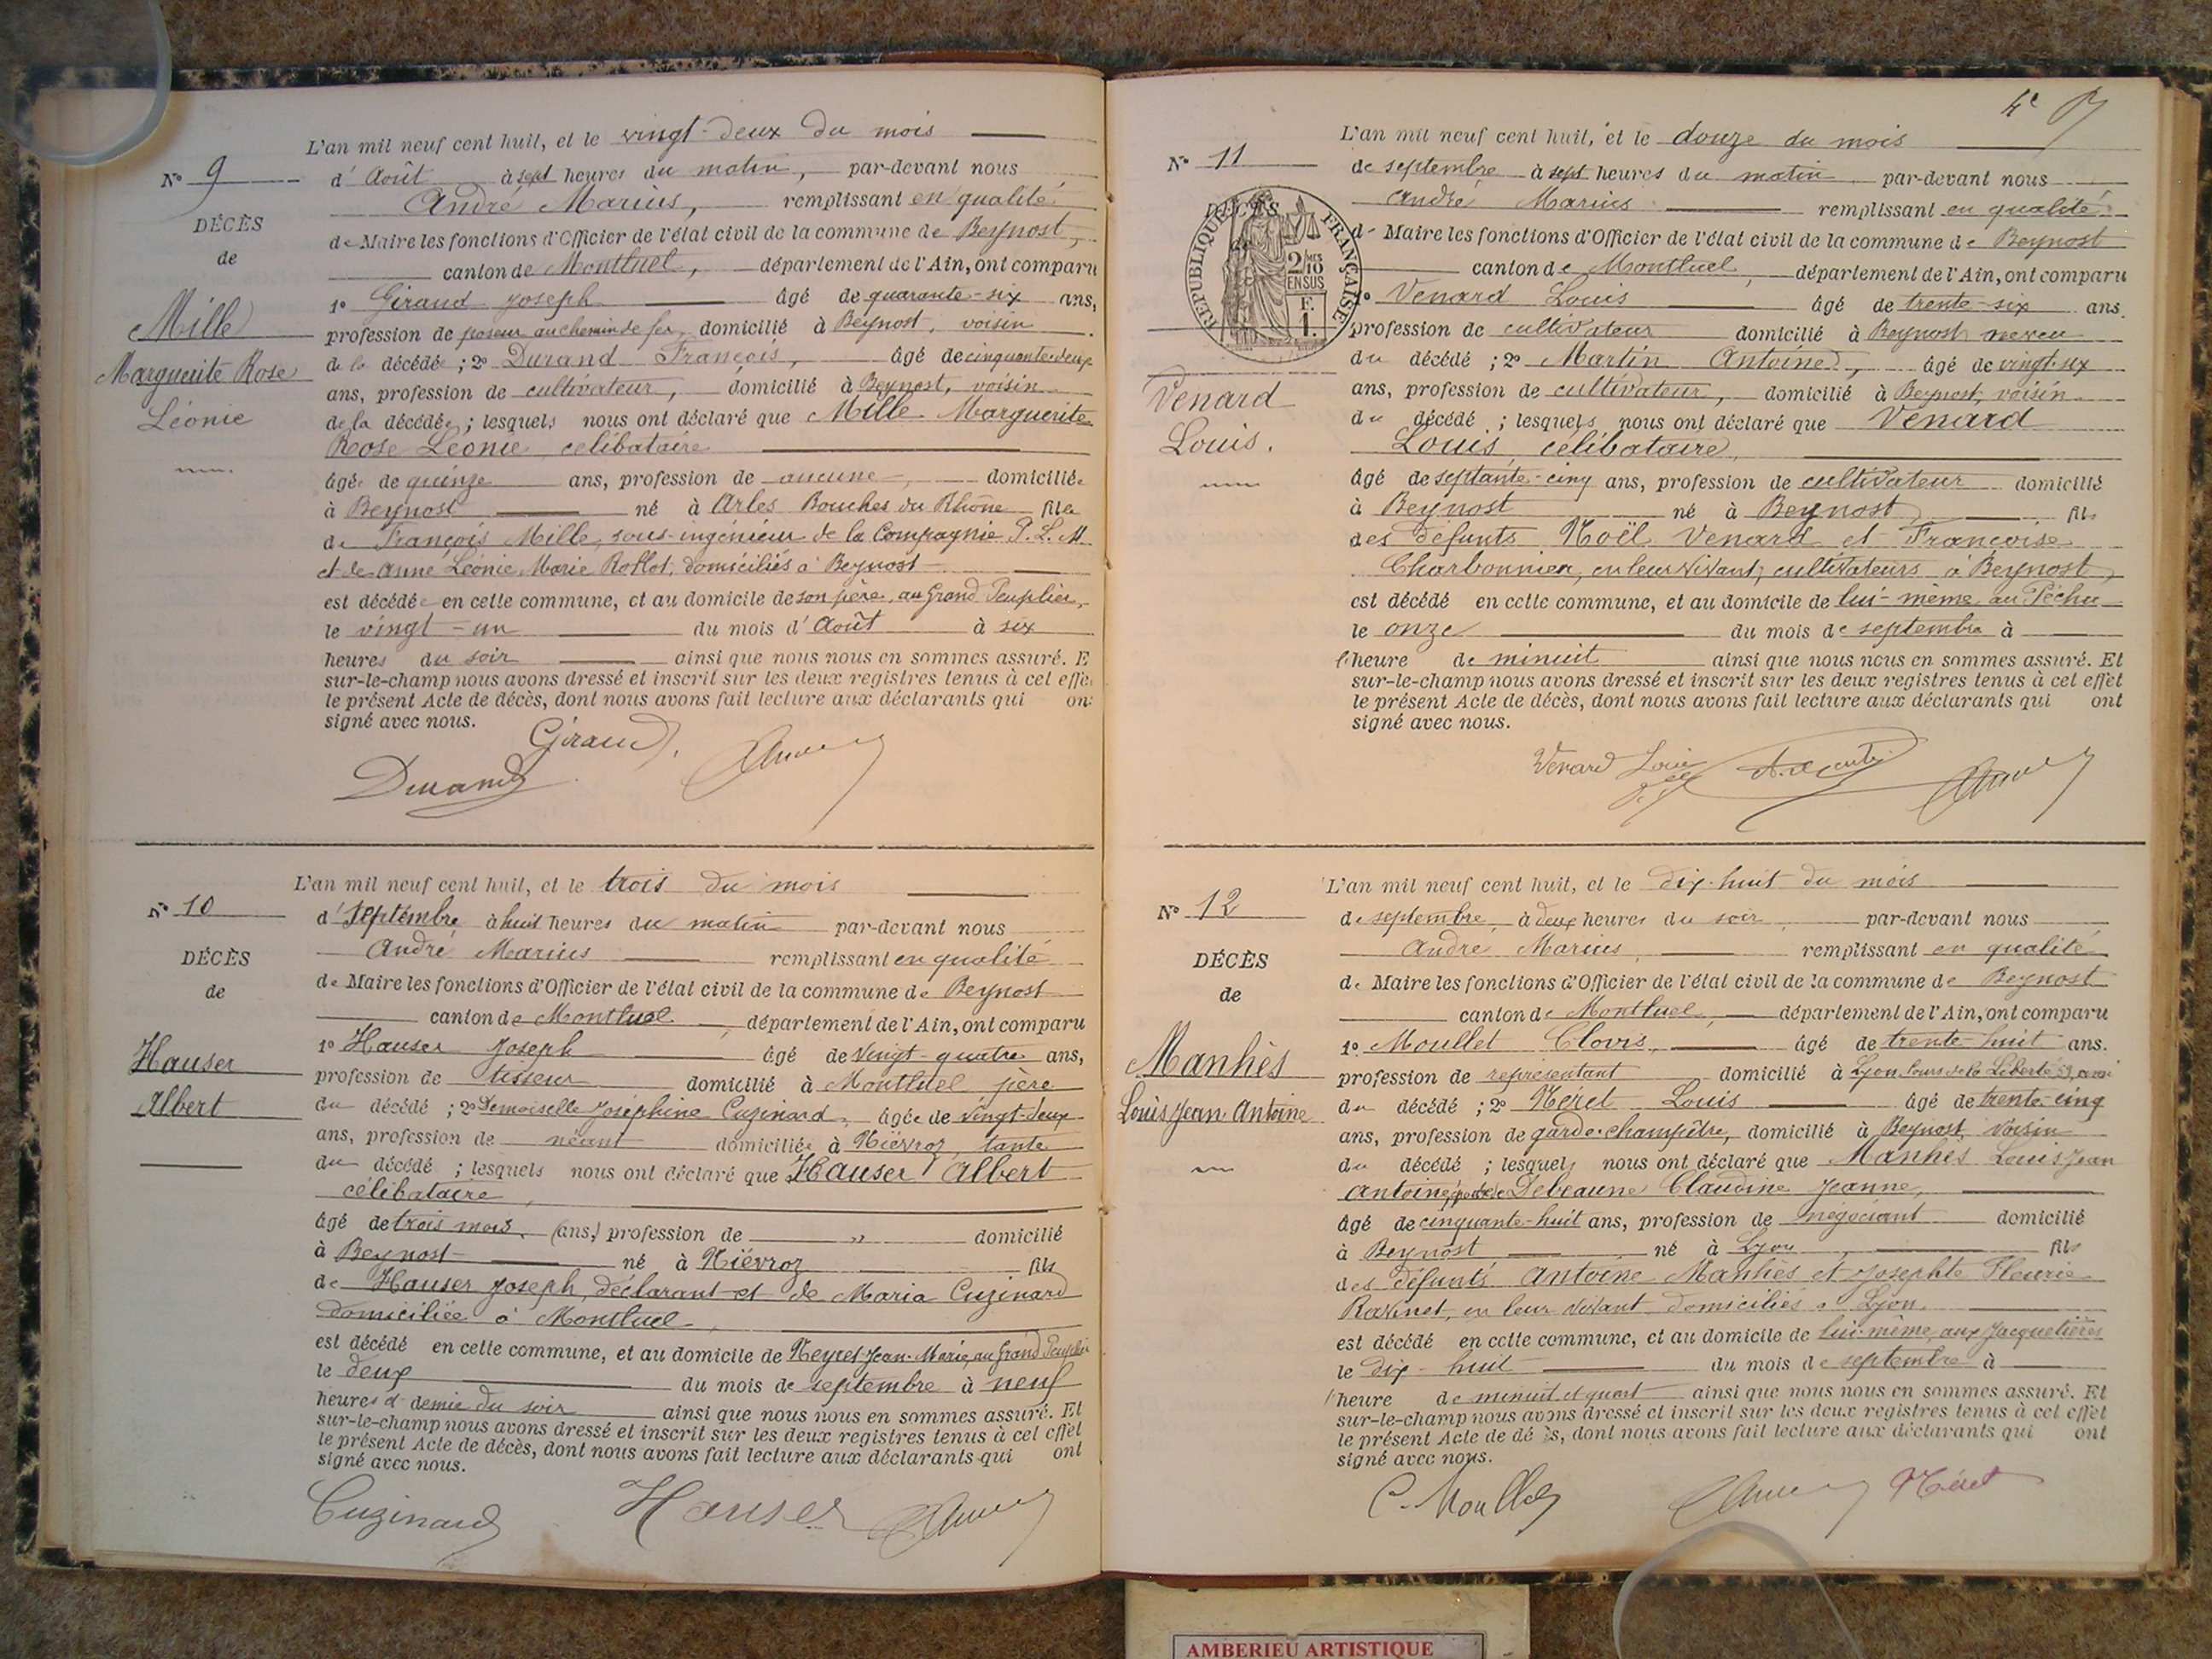 L'an mil neuf cent huit, et le vingt-deux du mois
N° 9
d'Août à sept heures du matin, par-devant nous
André Marius, remplissant en qualité
DÉCÈS
de Maire les fonctions d'Officier de l'état civil de la commune de Beynost,
de
canton de Montluel, département de l'Ain, ont comparu
1° Giraud Joseph âgé de quarante-six ans,
Mille
profession de poseur au chemin de fer, domicilié à Beynost, voisin
Marguerite Rose
de la décédée ; 2° Durand François, âgé de cinquante-deux
ans, profession de cultivateur, domicilié à Beynost, voisin
Léonie
de la décédée ; lesquels nous ont déclaré que Mille Marguerite
Rose Léonie célibataire
âgée de quinze ans, profession de aucune, domiciliée
à Beynost né à Arles Bouches du Rhône fille
de François Mille, sous-ingénieur de la Compagnie P. L. M.
et de Anne Léonie Marie domiciliés à Beynost
est décédée en cette commune, et au domicile de son père, au Grand Peuplier,
le vingt-un du mois d'Août à six
heures du soir ainsi que nous nous en sommes assuré. E
sur-le-champ nous avons dressé et inscrit sur les deux registres tenus à cet effe
le présent Acte de décès, dont nous avons fait lecture aux déclarants qui on
signé avec nous.
Giraud
Durand
L'an mil neuf cent huit, et le trois du mois
N° 10
d'Septembre à huit heures du matin par-devant nous
André Marius remplissant en qualité
DÉCÈS
de Maire les fonctions d'Officier de l'état civil de la commune de Beynost
de
canton de Montluel, département de l'Ain, ont comparu
1° Hauser Joseph âgé de vingt-quatre ans,
Hauser
profession de tisseur domicilié à Montluel père
Albert
du décédé ; 2° Demoiselle Joséphine Cuzinard, âgée de vingt-deux
ans, profession de néant domiciliée à Niévroz, tante
du décédé ; lesquels nous ont déclaré que Hauser Albert
célibataire,
âgé de trois mois, (ans,) profession de " domicilié
à Beynost né à Niévroz fils
de Hauser Joseph, déclarant et de Maria Cuzinard
domiciliée à Montluel,
est décédé en cette commune, et au domicile de Neyret Jean-Marie au Grand Peuplier
le deux du mois de septembre à neuf
heures et demie du soir ainsi que nous nous en sommes assuré. Et
sur-le-champ nous avons dressé et inscrit sur les deux registres tenus à cet effet
le présent Acte de décès, dont nous avons fait lecture aux déclarants qui ont
signé avec nous.
Cuzinard Hauser
4e
L'an mil neuf cent huit, et le douze du mois
N° 11
de septembre à sept heures du matin par-devant nous
André Marius remplissant en qualité
DÉCÈS
RÉPUBLIQUE FRANÇAISE
2/10MES EN SUS
F. 1.
de Maire les fonctions d'Officier de l'état civil de la commune de Beynost
canton de Montluel, département de l'Ain, ont comparu
1° Venard Louis âgé de trente-six ans.
profession de cultivateur domicilié à Beynost neveu
du décédé ; 2° Martin Antoine, âgé de vingt-six
Venard
ans, profession de cultivateur, domicilié à Beynost, voisin
du décédé ; lesquels nous ont déclaré que Venard
Louis.
Louis, célibataire,
âgé de septante-cinq ans, profession de cultivateur domicilié
à Beynost né à Beynost, fils
des défunts Noël Venard et Françoise
Charbonnier, en leur vivant, cultivateurs à Beynost,
est décédé en cette commune, et au domicile de lui-même au Péchu
le onze du mois de septembre à
l'heure de minuit ainsi que nous nous en sommes assuré. Et
sur-le-champ nous avons dressé et inscrit sur les deux registres tenus à cet effet
le présent Acte de décès, dont nous avons fait lecture aux déclarants qui ont
signé avec nous.
Venard Louis
L'an mil neuf cent huit, et le dix-huit du mois
N° 12
de septembre, à deux heures du soir, par-devant nous
André Marius, remplissant en qualité
DÉCÈS
de Maire les fonctions d'Officier de l'état civil de la commune de Beynost
de
canton de Montluel, département de l'Ain, ont comparu
1° Moullet Clovis, âgé de trente-huit ans.
Manhès
profession de représentant domicilié à Lyon Cours de la Liberté ami
Louis Jean Antoine
du décédé ; 2° Neret Louis âgé de trente-cinq
ans, profession de garde-champêtre, domicilié à Beynost, voisin
du décédé ; lesquels nous ont déclaré que Manhès Louis Jean
Antoine, époux de Debeaune Claudine Jeanne,
âgé de cinquante-huit ans, profession de négociant domicilié
à Beynost né à Lyon, fils
des défunts Antoine Manhès et Josephte Fleurie
Ravinet, en leur vivant domiciliés à Lyon,
est décédé en cette commune, et au domicile de lui-même, aux Jacquetières
le dix-huit du mois de septembre à
l'heure de minuit et quart ainsi que nous nous en sommes assuré. Et
sur-le-champ nous avons dressé et inscrit sur les deux registres tenus à cet effet
le présent Acte de décès, dont nous avons fait lecture aux déclarants qui ont
signé avec nous.
C. Moullet Néret
AMBERIEU ARTISTIQUE